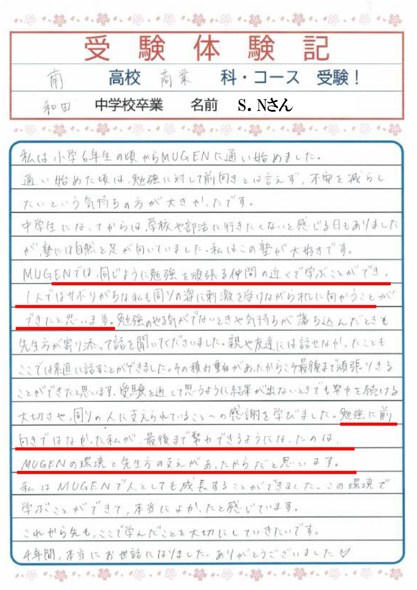 受験体験記
南 高校 商業 科・コース 受験！
和田 中学校卒業 名前 S.Nさん
私は小学6年生の頃からMUGENに通い始めました。
通い始めた頃は、勉強に対して前向きとは言えず、不安を減らし
たいという気持ちの方が大きかったです。
中学生になってからは、学校や部活に行きたくないと感じる日もありました
が、塾には自然と足が向いていました。私はこの塾が大好きです。
MUGENでは、同じように勉強を頑張る仲間の近くで学ぶことができ、
1人ではサボりがちな私も周りの姿に刺激を受けながら机に向かうことが
できたと思います。勉強のやる気がでないときや気持ちが落ち込んだときも
先生方が寄り添って話を聞いてくださいました。親や友達には話せなかったことも
ここでは素直に話すことができました。その積み重ねがあったからこそ最後まで頑張りきる
ことができたと思います。受験を通して思うように結果が出ないときでも努力を続ける
大切さや、周りの人に支えられていることへの感謝を学びました。勉強に前
向きではなかった私が、最後まで努力できるようになったのは、
MUGENの環境と先生方の支えがあったからだと思います。
私はMUGENで人としても成長することができました。この環境で
学ぶことができて、本当によかったと感じています。
これから先も、ここで学んだことを大切にしていきたいです。
4年間、本当にお世話になりました。ありがとうございました♡